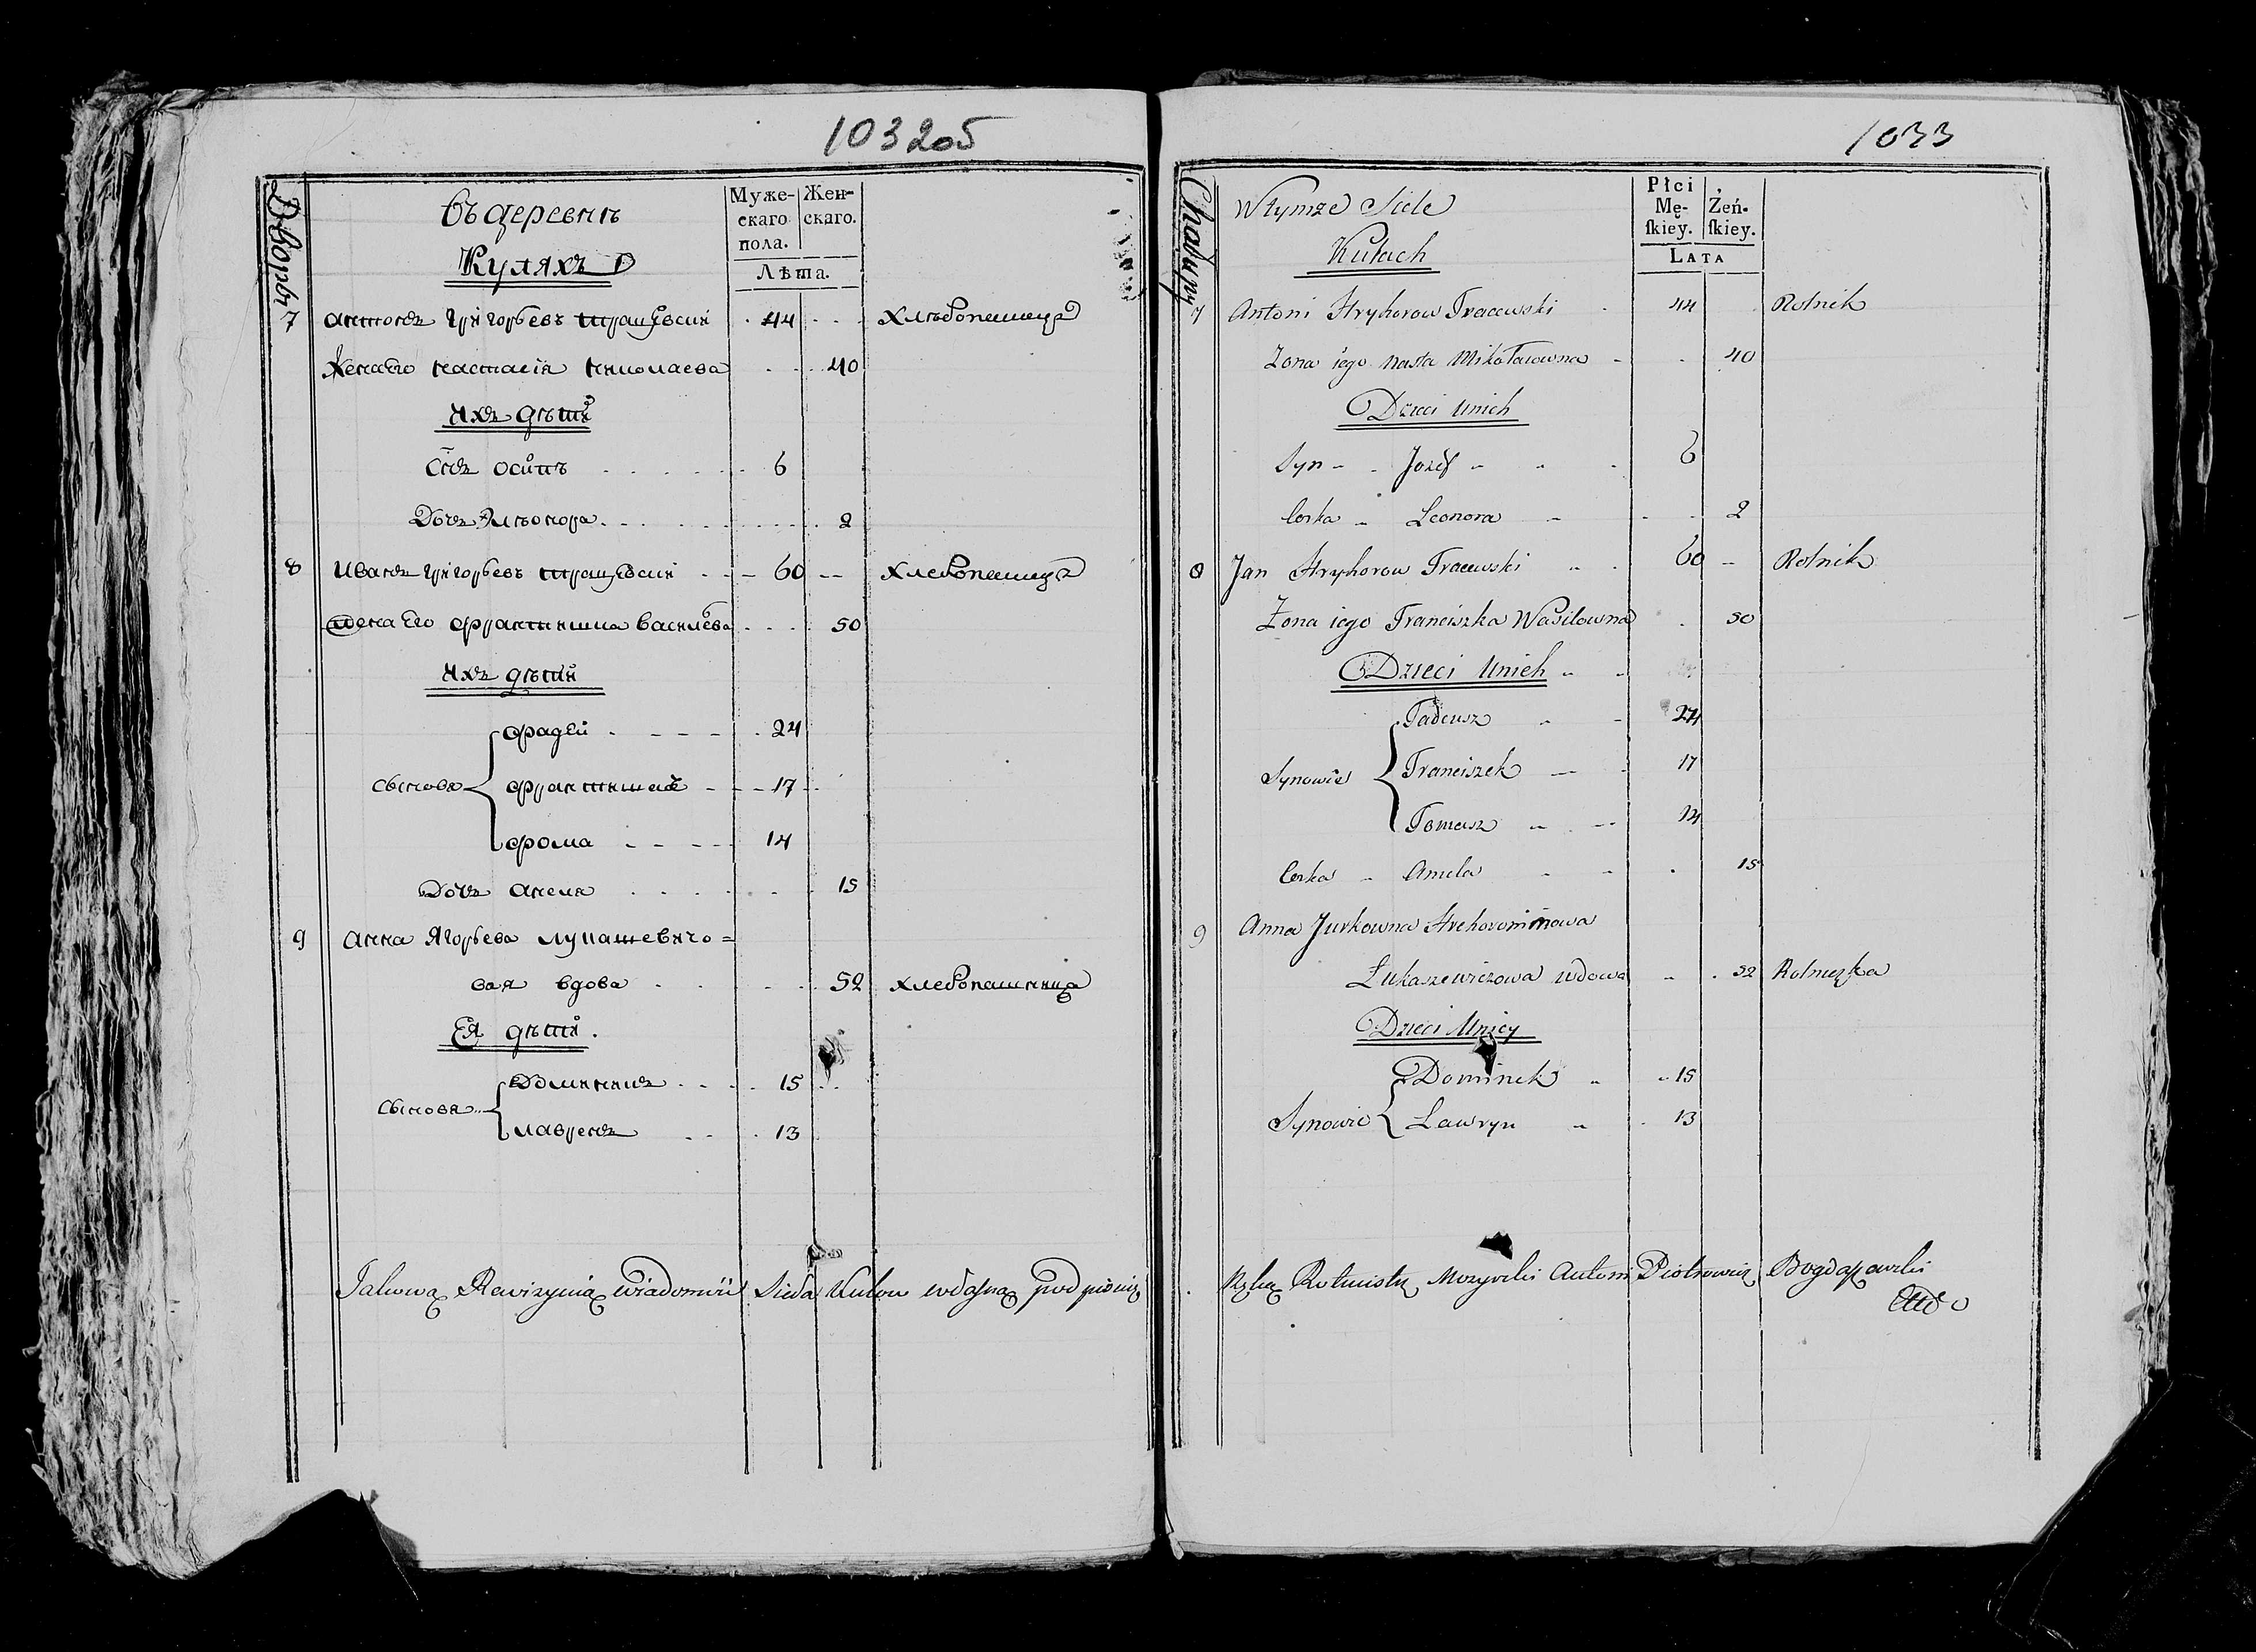 1032об
Дворы
Въ деревнѣ
Куляхъ
Муже-
скаго
пола.
Жен-
скаго.
Лѣта.
7 Антонъ Григорьевъ Трацевскій 44 Хлѣбопашецъ
Жена Его Настасія Николаева 40
Ихъ дѣти
Сынъ Осипъ 6
Дочь Элѣонора 2
8 Иванъ Григорьевъ Трацевскій 60 Хлебопашецъ
Жена Его Францишка Василева 50
Ихъ дѣти
Фадей 24
Сыновя Францишекъ 17
Фома 14
Дочь Анеля 15
9 Анна Ягорьева Лукашевичо=
вая вдова 52 Хлебопашница
Ея дѣти.
Доминикъ 15
Сыновя Лавренъ 13
Takową Rewizyiną wiadomość Sieła Kulow własną podpisuię
1033
Chałupy
W tymże Siele
Kulach
Płci
Mę-
skiey.
Żeń-
skiey.
LATA
7 Antoni Hryhorow Tracewski 44 Rolnik
Zona iego Nasta Mikołaiowna 40
Dzieci Unich
Syn Jozef 6
Corka Leonora 2
8 Jan Hryhorow Tracewski 60 Rolnik
Zona iego Franciszka Wasilowna 50
Dzieci Unich
Tadeusz 24
Synowie Franciszek 17
Tomasz 14
Corka Aniela 15
9 Anna Jurkowna
Łukaszewiczowa wdowa 52 Rolniczka
Dzieci Uniey
Dominik 15
Synowie Lawryn 13
Ręką Rotmistrz Mozyrski Antoni Piotrowicz